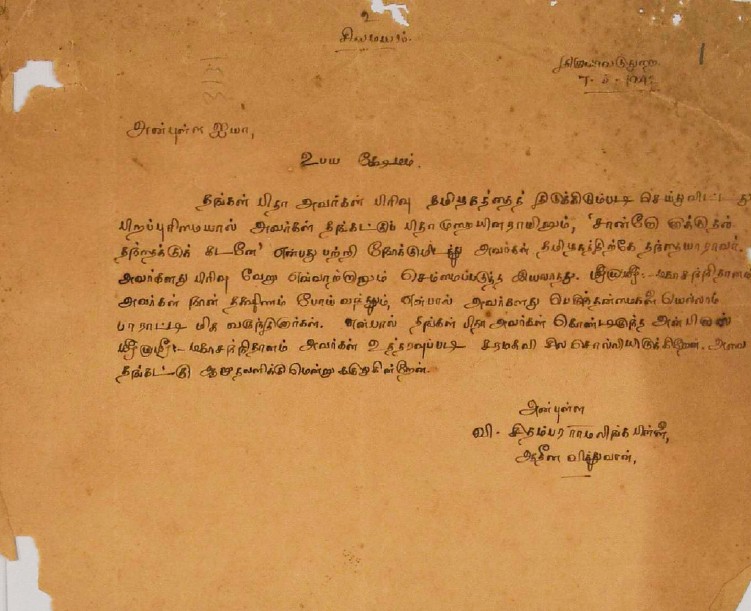 உ
சிவமயம்.
திருவாவடுதுறை
அன்புள்ள ஐயா,
உபய க்ஷேமம்.
தங்கள் பிதா அவர்கள் பிரிவு தமிழகத்தைத் திடுக்கிடும்படி செய்துவிட்டது
பிறப்புரிமையால் அவர்கள் தங்கட்குப் பிதா முறையினராயினும், 'சான்றோ னாக்குதல்
தந்தைக்குக் கடனே' என்பது பற்றி நோக்குமிடத்து அவர்கள் தமிழகத்திற்கே தந்தையாராவர்.
அவர்களது பிரிவு வேறு எவ்வாற்றானும் செம்மைப்படுத்த இயலாதது. ஸ்ரீலஸ்ரீ மகாசந்நிதானம்
அவர்கள் நான் தக்ஷிணம் போய் வந்ததும், என்பால் அவர்களது பெருந்தன்மைகளை யெல்லாம்
பாராட்டி மிக வருந்தினார்கள். என்பால் தங்கள் பிதா அவர்கள் கொண்டிருந்த அன்பினால்
ஸ்ரீலஸ்ரீ மகாசந்நிதானம் அவர்கள் உத்தரவுப்படி சரமகவி சில சொல்லியிருக்கிறேன். அவை
தங்கட்கு ஆறுதலளிக்கு மென்று கருதுகின்றேன்.
அன்புள்ள
வி. சிதம்பர ராமலிங்க பிள்ளை,
ஆதீன வித்துவான்.